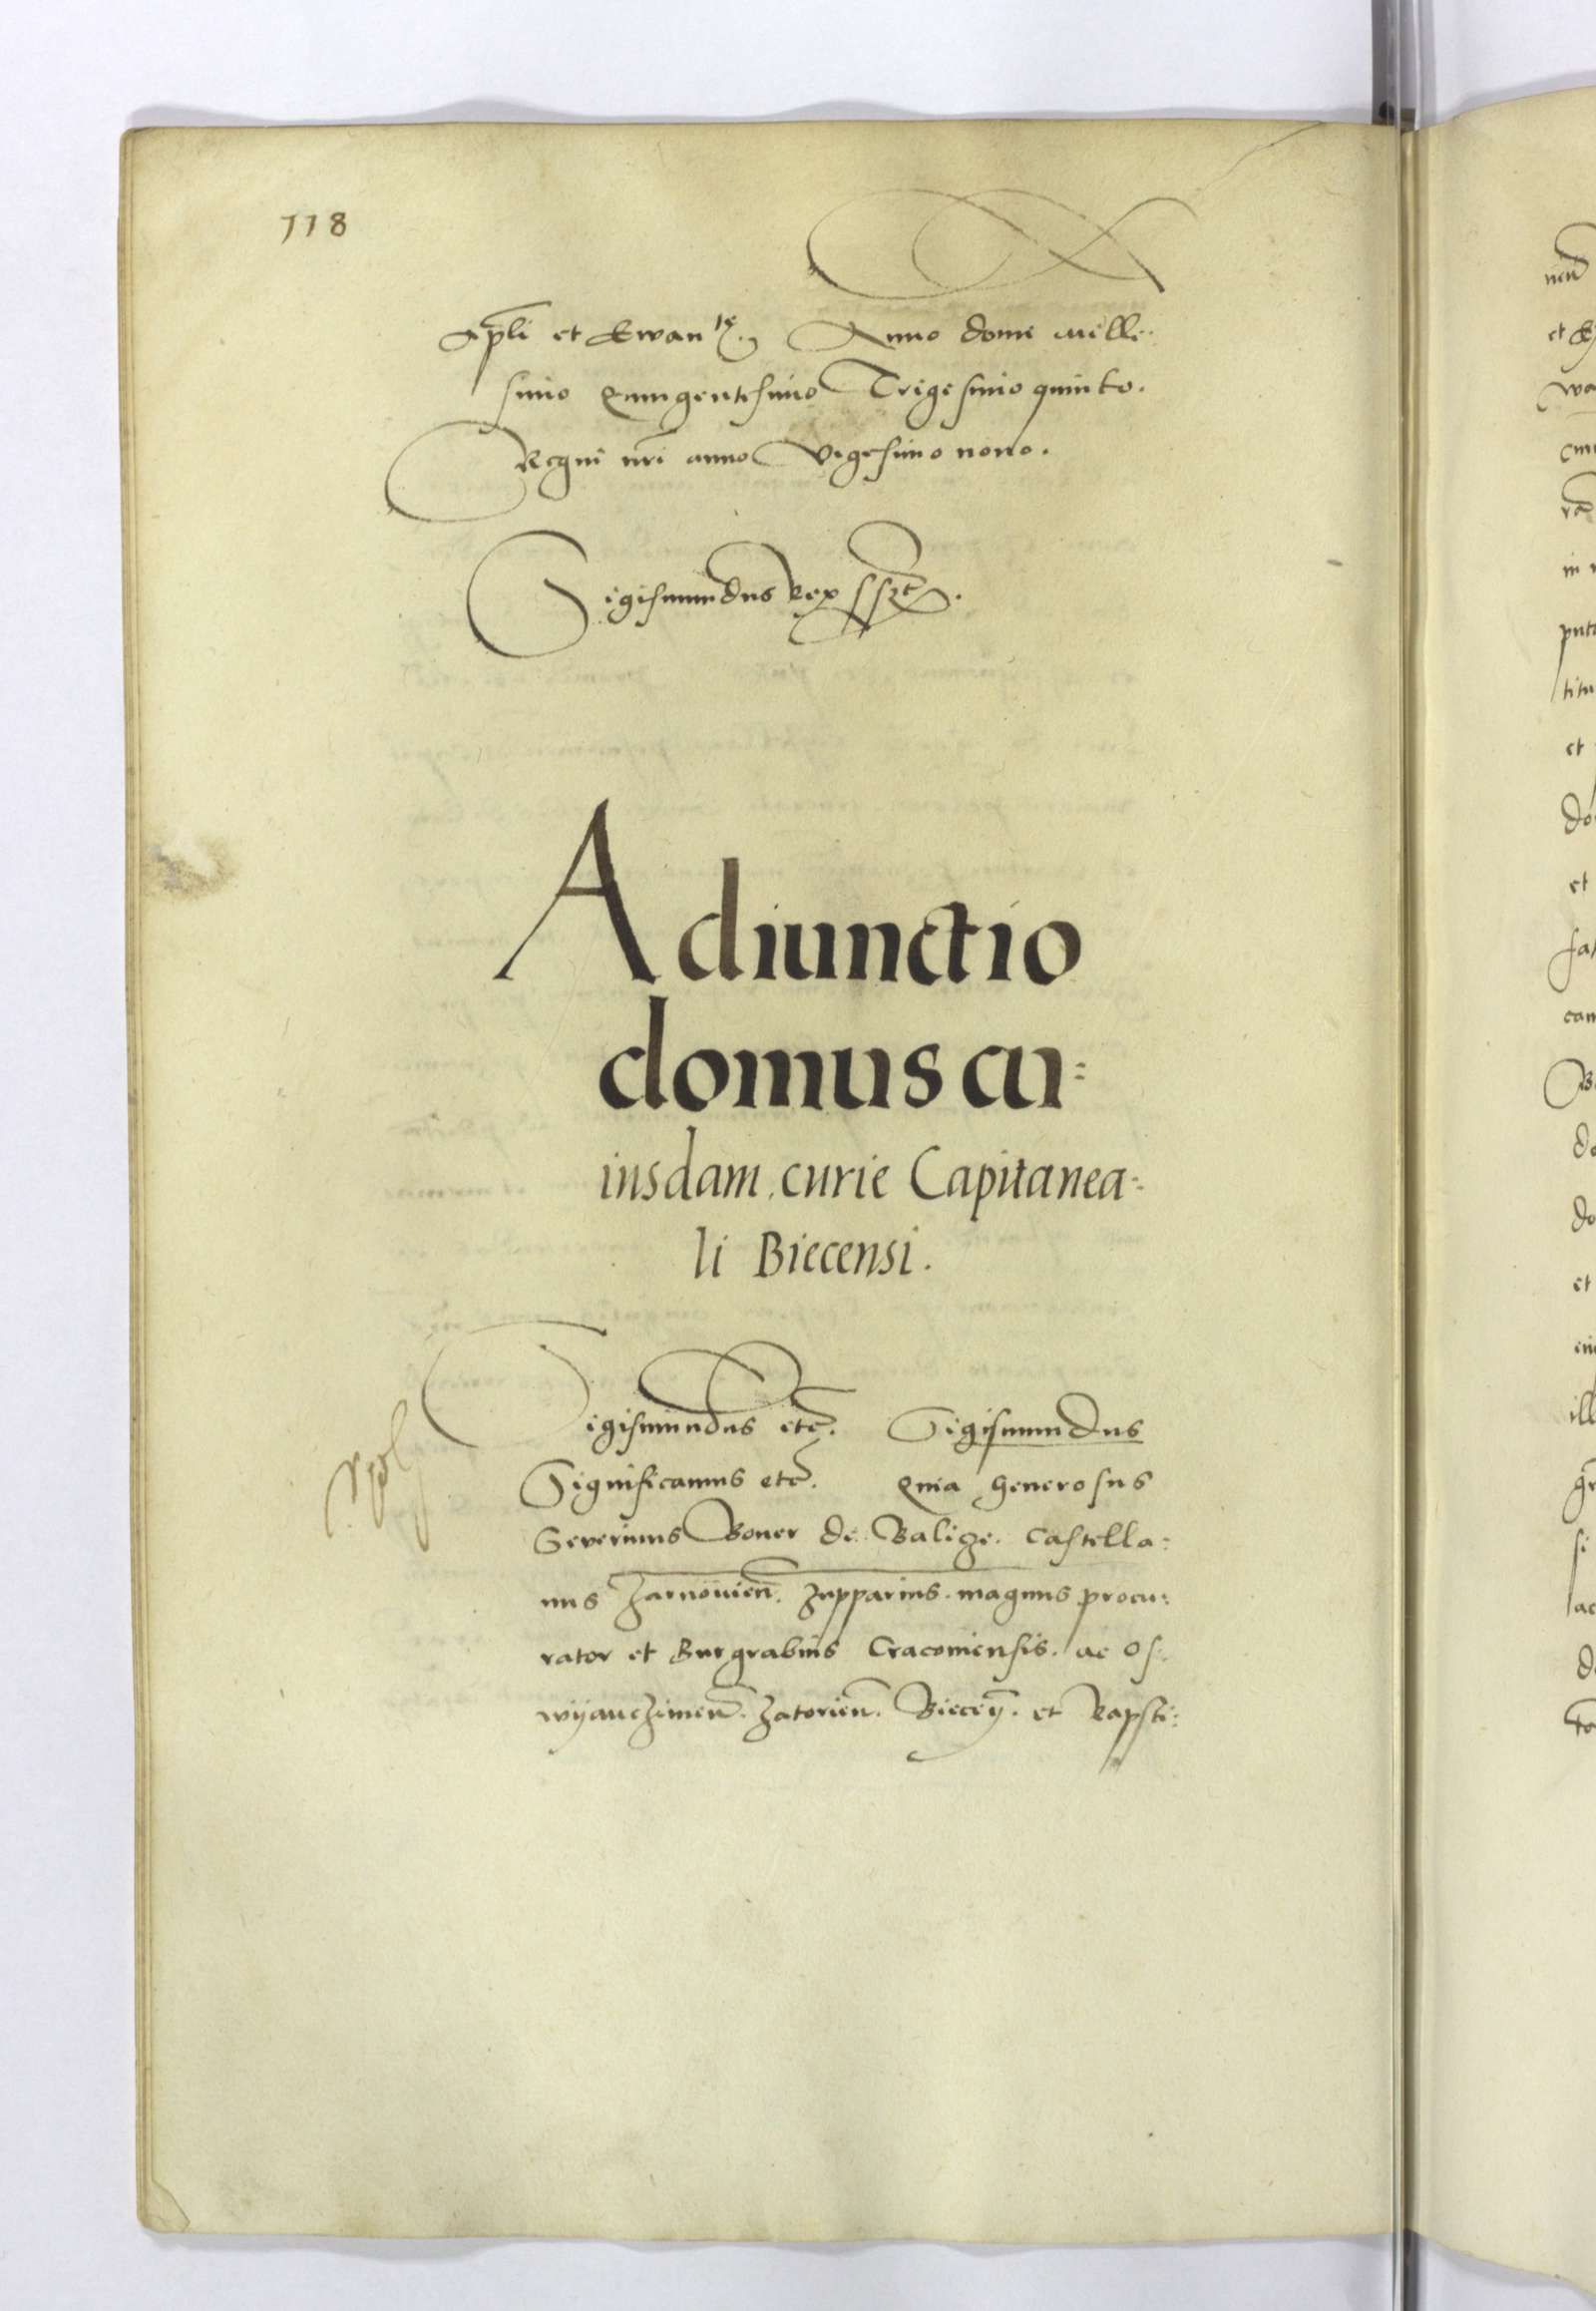 118
Apli et Ewan Anno domi mille
simo Quingentesimo Trigesimo quinto.
Regni nri anno Vigesimo nono.
Sigismundus Rex sszt.
Adiunctio
domus cu=
iusdam curie Capitanea=
li Biecensi.
Sigismundus etc. Sigismundus
Significamus etc. Quia Generosus
Severinus Boner de Balicze. Castella=
nus Zarnouien. Zupparius. magnus procu=
rator et Burgrabius Cracouiensis. ac Os
wyanczimen. Zatorien. Biecen. et Rapsti=